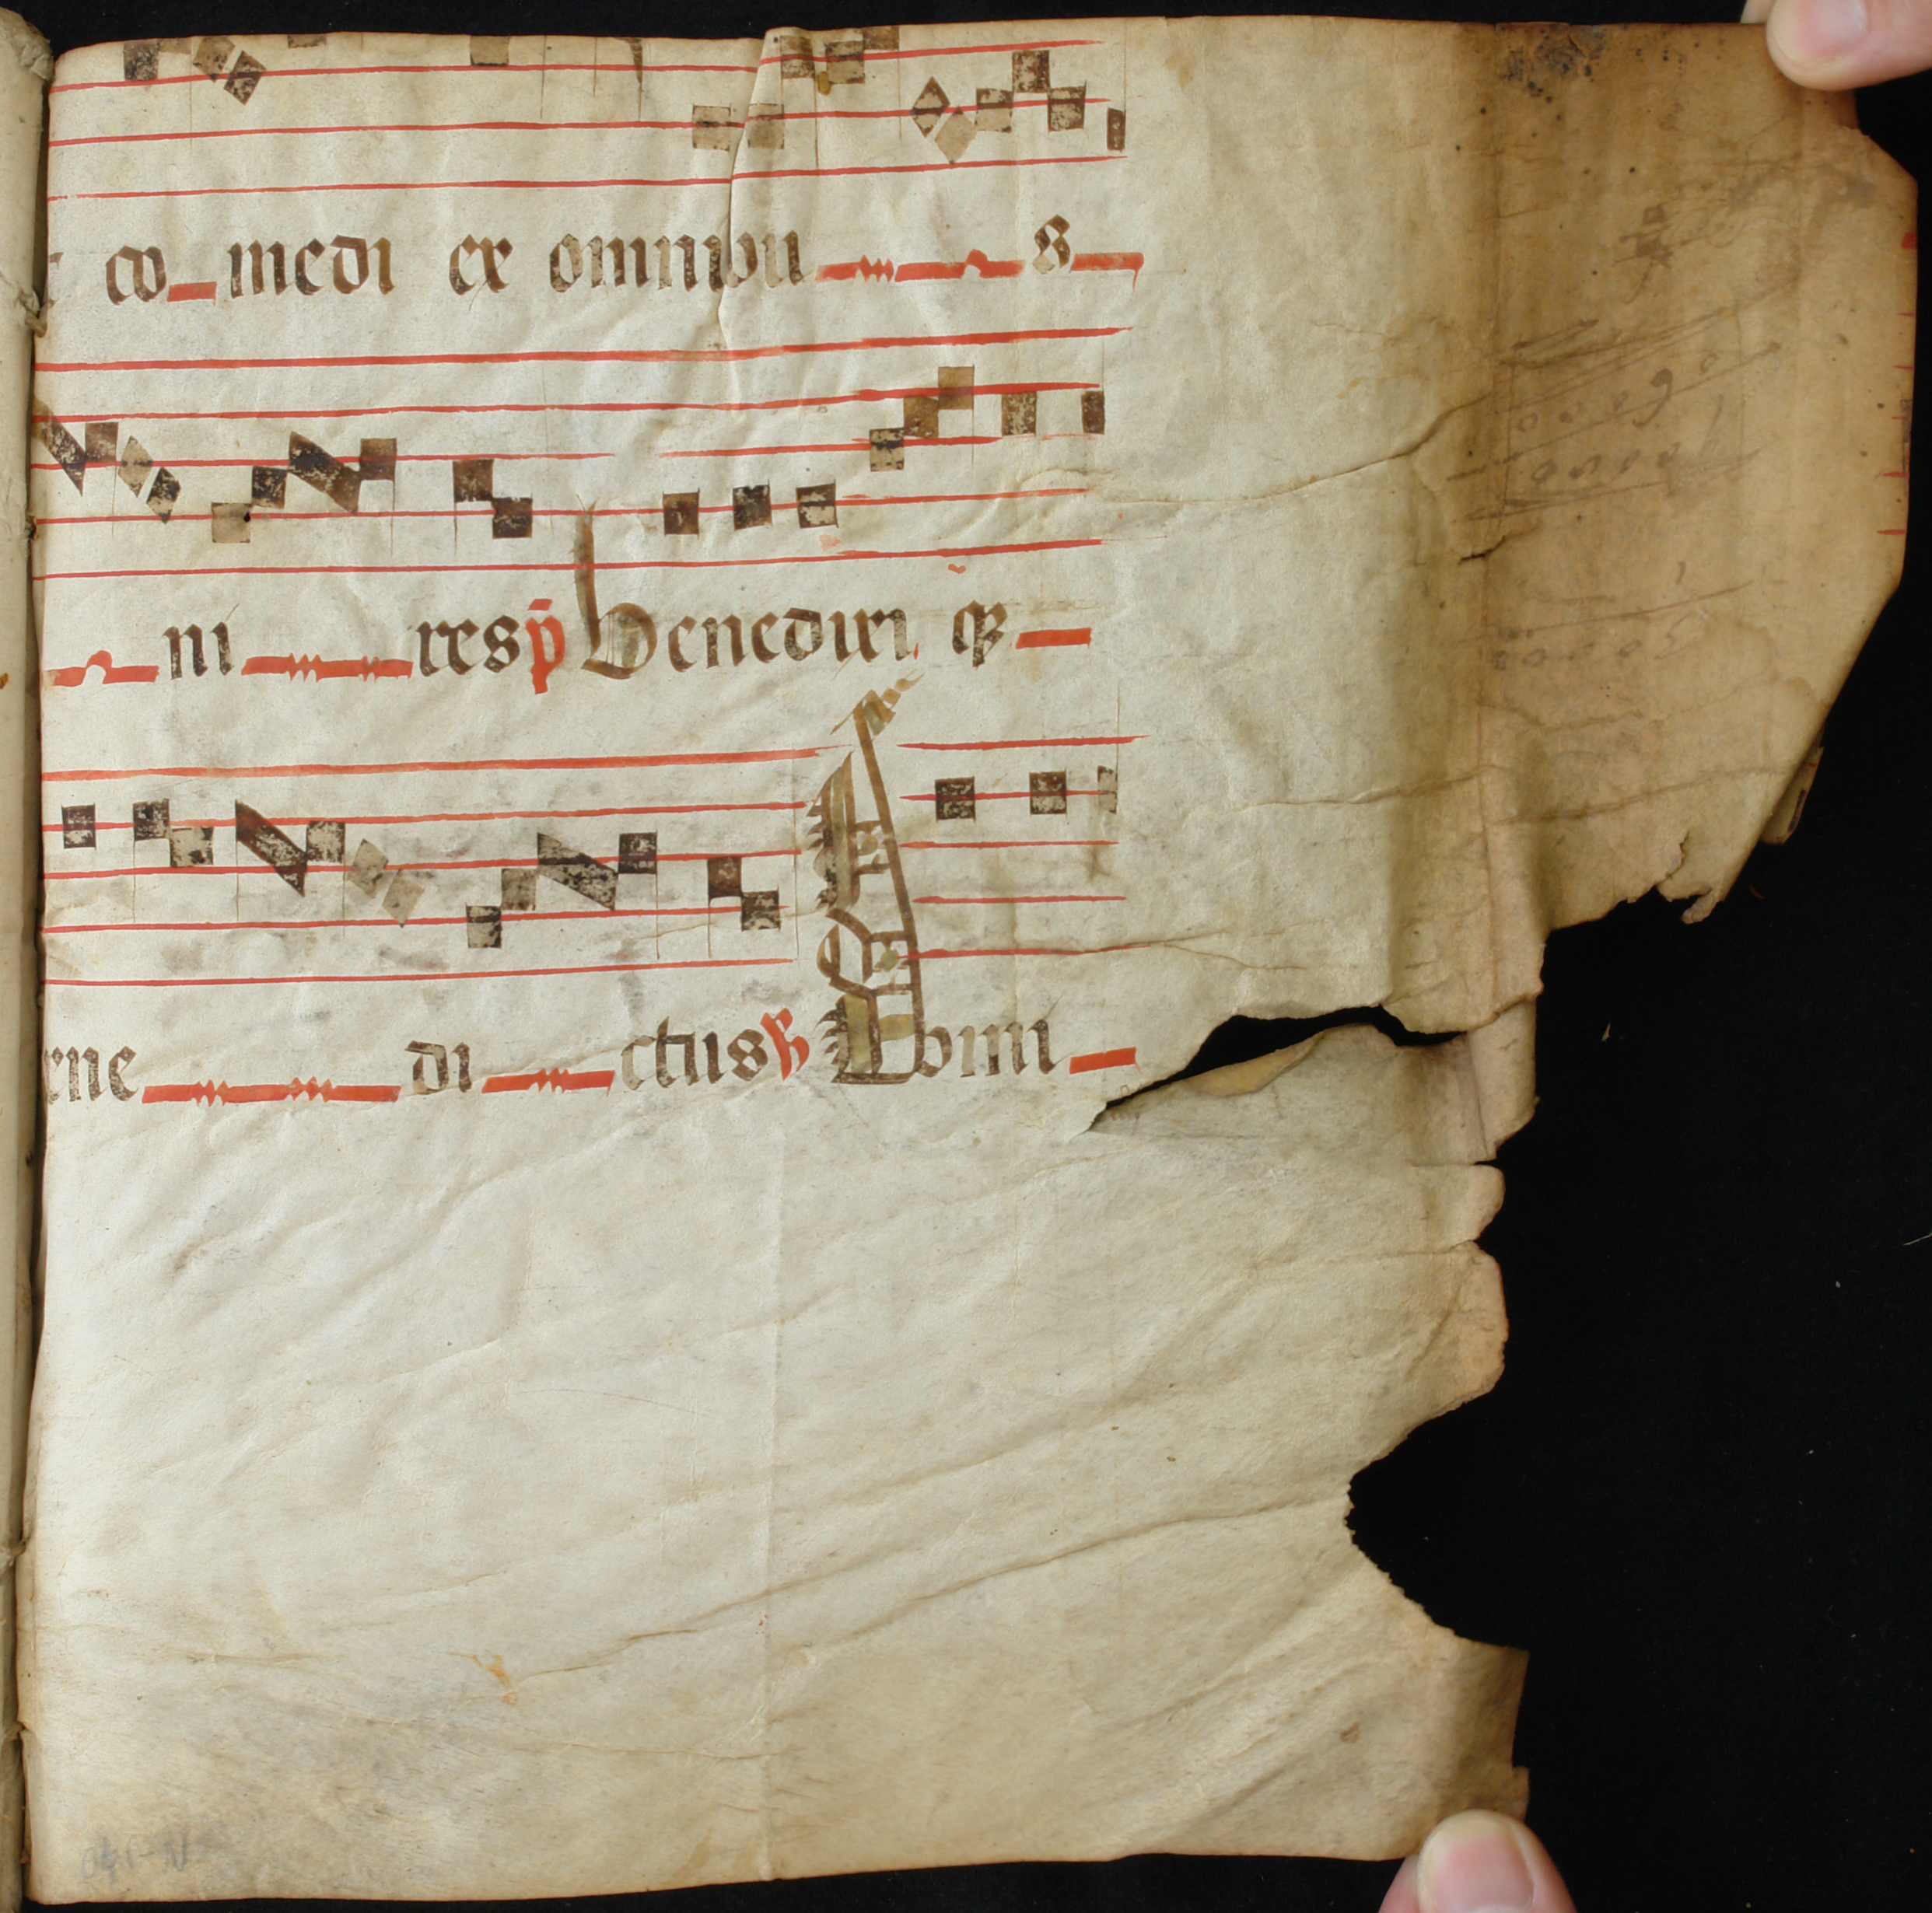 co medi ex omnibu s
ni res p̄ benedixi qꝫ
ene di ctus ℣ Domi